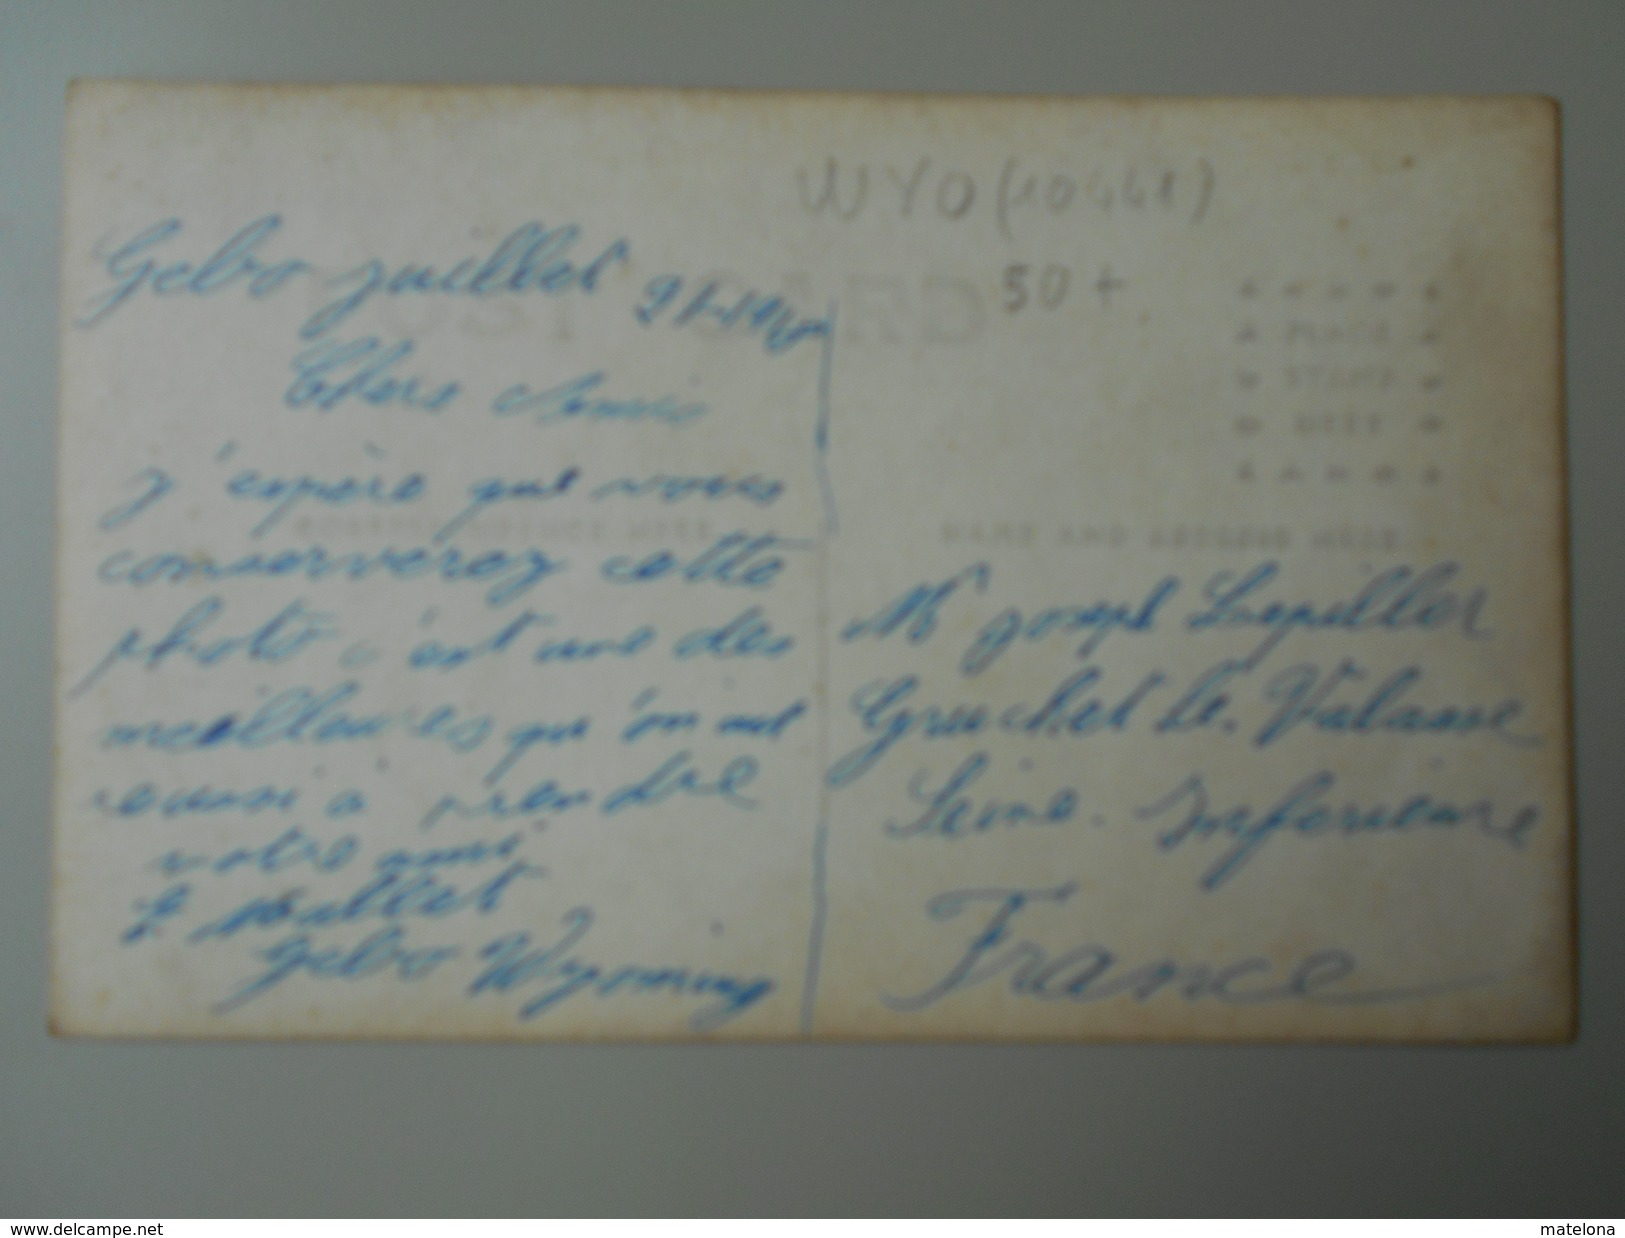 WYO (10441)
50 +
POST CARD
PLACE
STAMP
HERE
CORRESPONDENCE HERE
NAME AND ADDRESS HERE
Gebo juillet
Chers Amis
j'espère que vous
conserverez cette
photo c'est une des
meilleures qu'on ait
reussi à prendre
votre ami
Mallet
Gebo Wyoming
Mr Joseph Lepiller
Gruchet le. Valasse
Seine. Inferieure
France
www.delcampe.net
matelona